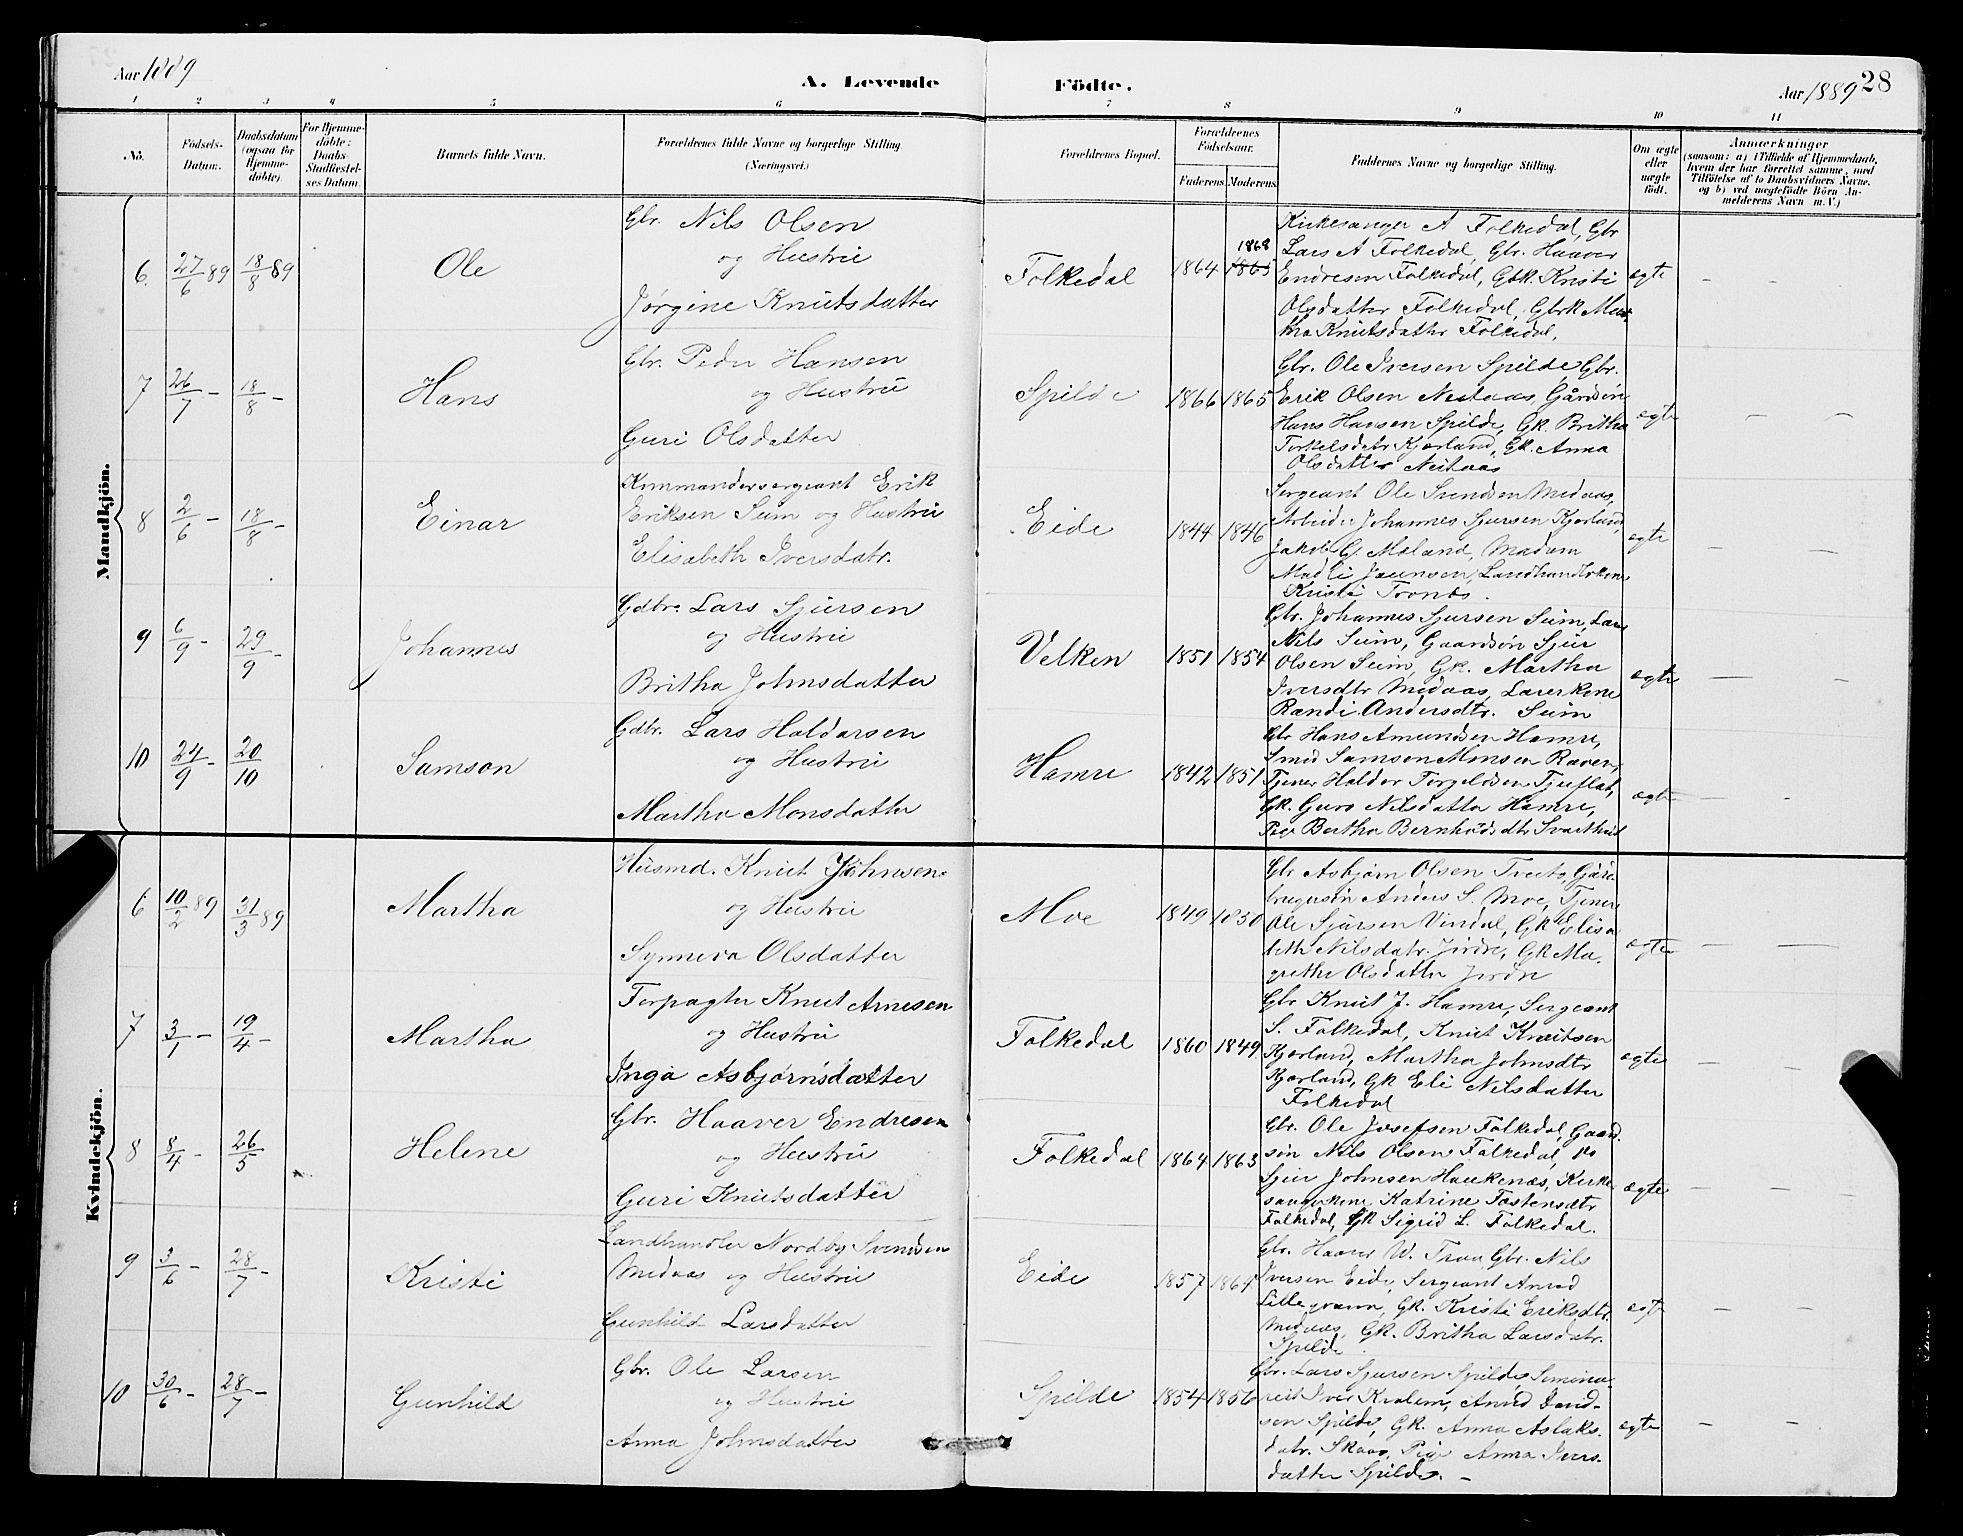 Aar 1889
A. Levende
Födte.
Aar 1889
28
1 2 3 4 5 6 7 8 9 10 11
No.
Födsels-
Datum.
Daabsdatum
(ogsaa for
Hjemme-
döbte)
For Hjemme-
döbte:
Daabs-
Stadfæstel-
ses Datum.
Barnets fulde Navn.
Forældrenes fulde Navne og borgerlige Stilling
(Næringsvei.)
Forældrenes Bopæl.
Forældrenes
Födselsaar.
Faderens. Moderens.
Faddernes Navne og borgerlige Stilling.
Om ægte
eller
uægte
födt.
Anmærkninger
(saasom: a) i Tilfælde af Hjemmedaab,
hvem der har forrettet samme, med
Tilföielse af to Daabsvidners Navne.
og b) ved uegtefödte Börn An-
melderens Navn m. V.)
Mandkjön.
6. 27/6 89 18/8 89
Ole
Gbr. Nils Olsen
og Hustru
Jørgine Knutsdatter
Folkedal
1864 1868
1865
Kirkesanger A Folkedal, Gbr
Lars A Folkedal, Gbr. Haaver
Endresen Folkedal, Gbk. Kristi
Olsdatter Folkedal, Gbrk Mar-
tha Knutsdatter Folkedal,
ægte - -
7 26/7 - 18/8 -
Hans
Gbr. Peder Hansen
og Hustru
Guri Olsdatter
Spilde
1866 1865
Gbr. Ole Iversen Spilde Gbr.
Erik Olsen Nestaas, Gårdsøn
Hans Hansen Spilde, GK. Britha
Torkelsdatr Kjerland, GK. Anna
Olsdatter Nestaas
ægte - -
8 2/6 - 18/8 -
Einar
Kommandersergeant Erik
Eriksen Seim og Hustru
Elisabeth Iversdatr.
Eide
1844 1846
Sergeant Ole Svendsen Medaas,
Arbeider Johannes Sjursen Kjerland,
Jakob G. Mæland, Madam
Madli Jaunsen, Landhandlerkone
Kristi Tronæs.
ægte - -
9 6/9 - 29/9 -
Johannes
Gdbr. Lars Sjursen
og Hustru
Britha Johnsdatter
Velken
1851 1854
Gbr. Johannes Sjursen Seim, Lars
Nils Seim, Gaardsøn Sjur
Olsen Seim, GK. Martha
Iversdtr Medaas, Lærerkone
Randi Andersdtr. Seim
ægte - -
10 24/9 - 20/10
Samson
Gdbr. Lars Haldorsen
og Hustru
Martha Monsdatter
Hamre
1842 1851
Gbr Hans Amundsen Hamre,
Smed Samson Monsen Raven,
Tjener Haldor Torgeldsen Tjuflat,
GK. Guro Nilsdatter Hamre,
Pige Bertha Bernhardsdtr Svarthed
ægte - -
Kvindekjön.
6 10/2 89 31/3 89
Martha
Husmd. Knut Johnsen
og Hustru
Synneva Olsdatter
Moe
1849 1850
Gbr Asbjørn Olsen Tveito, Gård-
brugersøn Anders S. Moe, Tjener
Ole Sjursen Vindal, GK Elisa
beth Nilsdatr. Jirdre, GK Ma-
grethe Olsdatter Jirdre
ægte - -
7 3/1 - 19/4 -
Martha
Forpagter Knut Arnesen
og Hustru
Inga Asbjørnsdatter
Folkedal
1860 1849
Gbr Knut J. Hamre, Sergeant
S. Folkedal, Knut Knutsen
Kjerland, Martha Johnsdtr
Kjerland, GK Eli Nilsdatter
Folkedal
ægte - -
8 8/4 - 26/5
Helene
Gbr. Haaver Endresen
og Hustru
Guri Knutsdatter
Folkedal
1864 1863
Gbr. Ole Josefsen Folkedal, Gaard-
søn Nils Olsen Folkedal, do
Sjur Johnsen Haukenæs, Kirke-
sangerkone Katrine Tostensdtr
Folkedal, GK Sigrid L. Folkedal.
ægte - -
9 3/6 - 28/7 -
Kristi
Landhandler Nordby Svendsen
Medaas og Hustru
Gunhild Larsdatter
Eide
1857 1864
Gbr. Haaver W. Traa Gbr. Nils
Iversen Eide, Sergeant Amund
Lillegraven, GK. Kristi Eriksdtr.
Medaas, GK. Britha Larsdatr.
Spilde.
ægt - -
10 30/6 - 28/7 -
Gunhild
Gbr. Ole Larsen
og Hustru
Anna Johnsdatter
Spilde
1854 1856
Gbr. Lars Sjursen Spilde, Semina-
rist Iver Kvalem,
Spilde, GK. Anna Aslaks-
datr. Skaar, Pige Anna Ivers-
datter Spilde. -
ægte - -